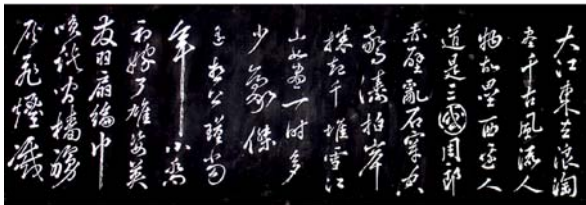 大江東去浪淘
盡千古風流人
物故壘西邊人
道是三國周郎
赤壁亂石穿空
驚濤拍岸
捲起千堆雪江
山如畫一時多
少豪傑
遙想公瑾當
年小喬
初嫁了雄姿英
發羽扇綸巾
笑談間檣艣
灰飛煙滅